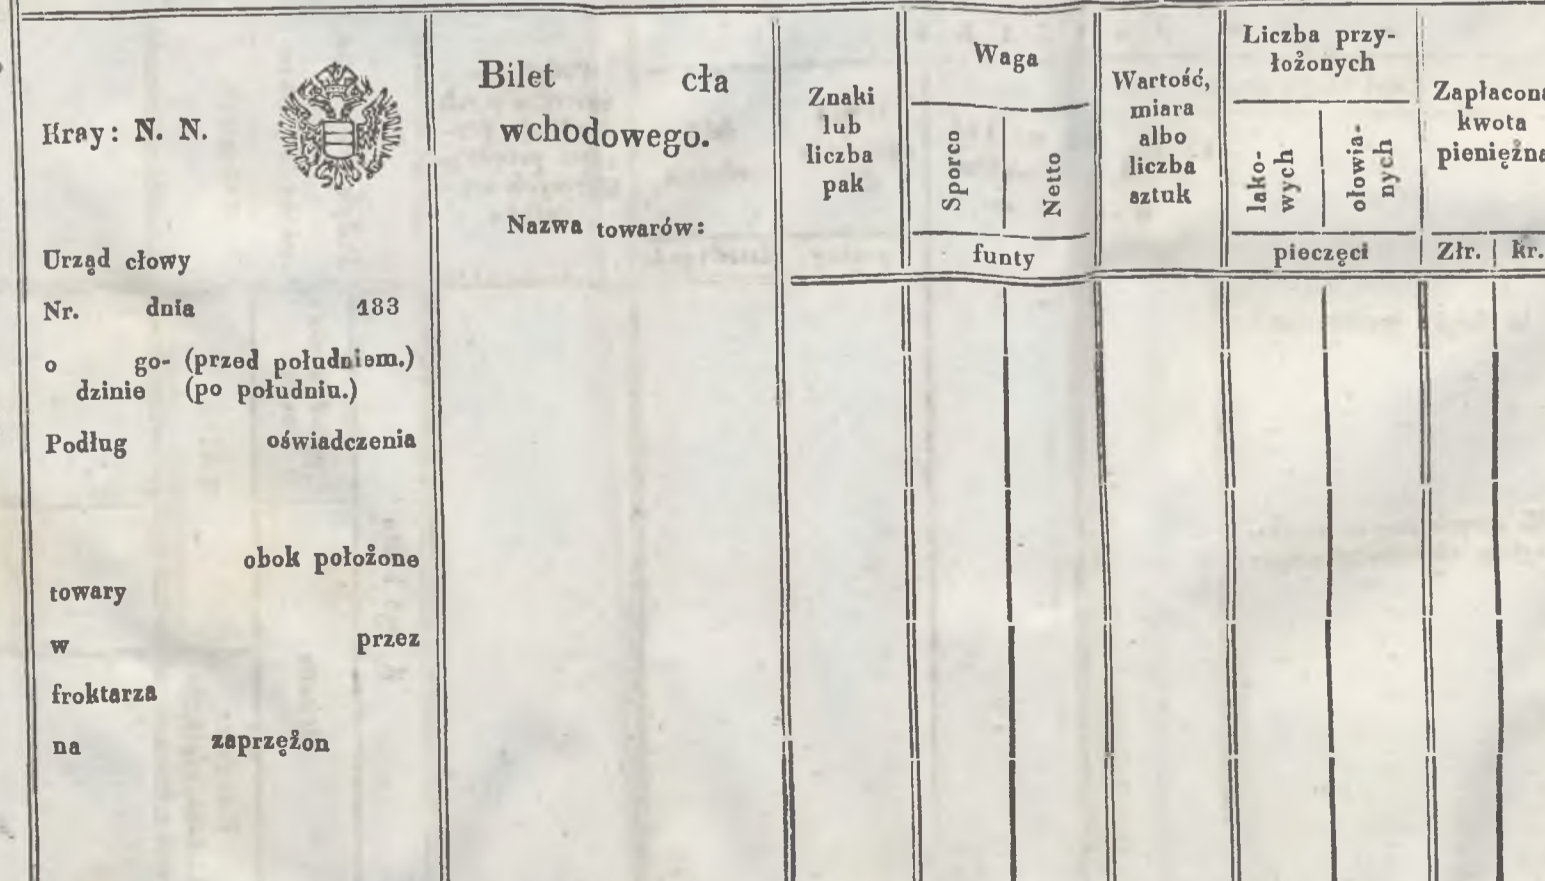 Kray: N. N.
Urząd cłowy
Nr. dnia 183
o go- (przed południem.)
dzinie (po południu.)
Podług oświadczenia
obok położone
towary
w przez
froktarza
na zaprzężon
Bilet cła
wchodowego.
Nazwa towarów:
Znaki
lub
liczba
pak
Waga
Sporco
Netto
funty
Wartość,
miara
albo
liczba
sztuk
Liczba przy-
łożonych
lako-
wych
ołowia-
nych
pieczęci
Zapłacona
kwota
pieniężna
Złr. kr.